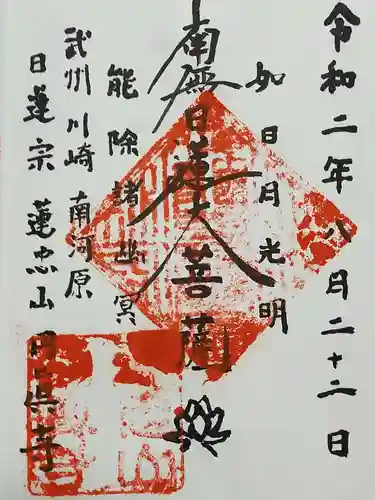 令和二年八月二十二日
如日月光明
南無日蓮大菩薩
能除諸幽冥
武州川崎南河原
日蓮宗蓮忠山